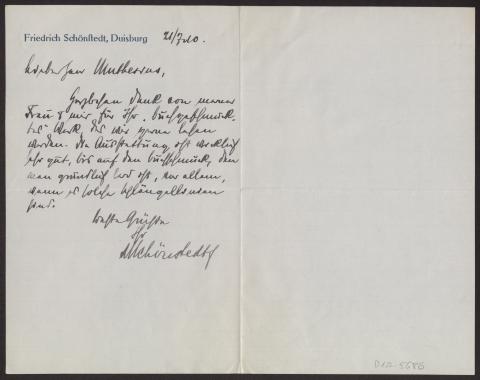 Friedrich Schönstedt, Duisburg 21/7.10.
Lieber Herr Muthesius,
Herzlichen Dank von meiner
Frau & mir für Ihr „buchgeschmück-
tes" Werk, das wir gerne lesen
werden. Die Ausstattung ist wirklich
sehr gut, bis auf den Buchschmuck, den
man gründlich leid ist, vor allem,
wenn es solche
sind.
Beste Grüße
Ihr
Schönstedt
D102-5686